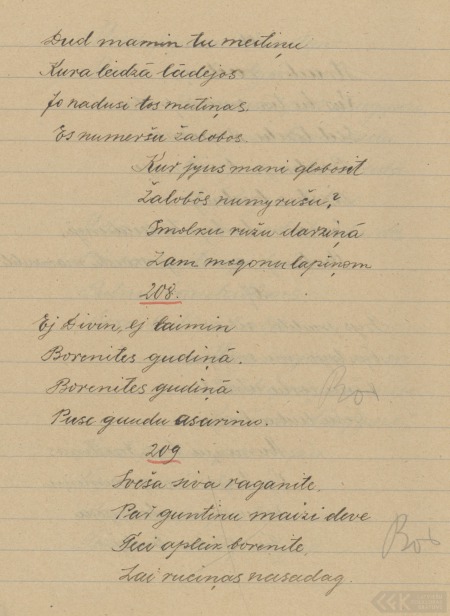 Dud mamin tu meitiņu
Kura leidzā lādejos
Jo nadusi tos meitiņas.
Es numeršu žalobos
Kur jyus mani globosit
Žalobōs numyrušu?
Smolku ružu darziņā
Zam mogonu lapiņom
208.
Ej Divin, ej laimin
Borenites gudiņā.
Borenites gudiņā
Puse gaudu asarinu.
209
Sveša siva raganite,
Par guntinu maizi deve
Teci apleik borenite,
Lai ruciņas nasadag.
Bor
Bor